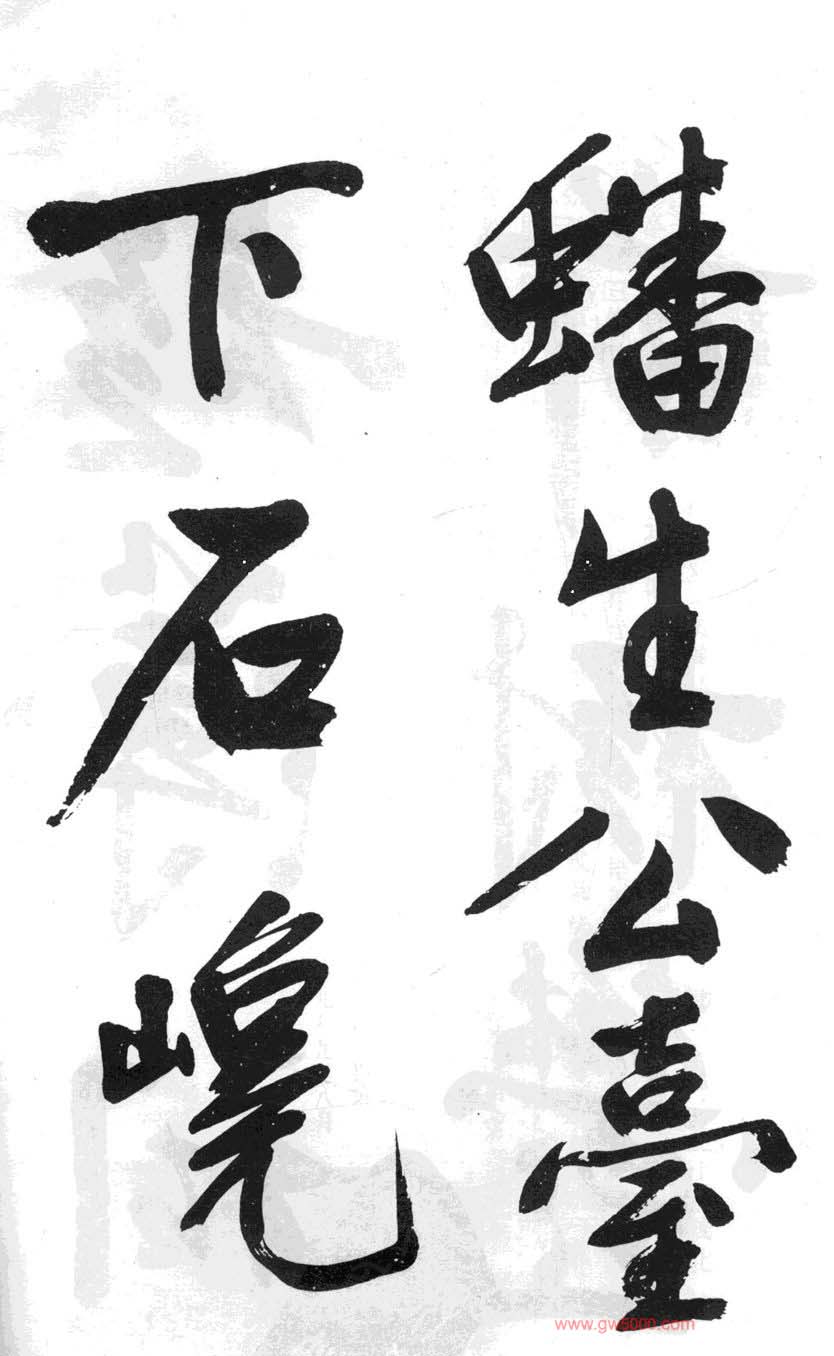 蟠生公臺
下石巉
www.gw8000.com